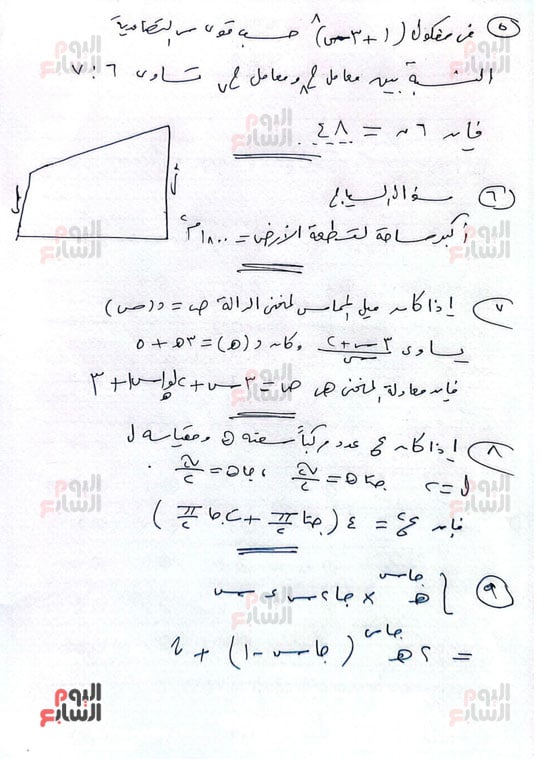 ٥ فى مفكوك (١ + ٣س)^٨ حسب قوى س التصاعدية
النسبة بين معامل ح٨ ومعامل ح٧ تساوى ٦ : ٧
فإن ٦ن = ٤٨
٦ سؤال السياج
أكبر مساحة لقطعة الأرض = ١٨٠٠ م٢
٧ إذا كان ميل المماس لمنحنى الدالة ص = د(س)
يساوى (٣س + ٢)/س وكان د(هـ) = ٣هـ + ٥
فإن معادلة المنحنى هى ص = ٣س + ٢لو|س| + ٣
٨ إذا كان ع عدد مركباً سعته هـ ومقياسه ل
ل = ٢
٩ هـ^جاس × جا٢س ءس
= ٢هـ^جاس (جاس - ١) + ث
اليوم السابع